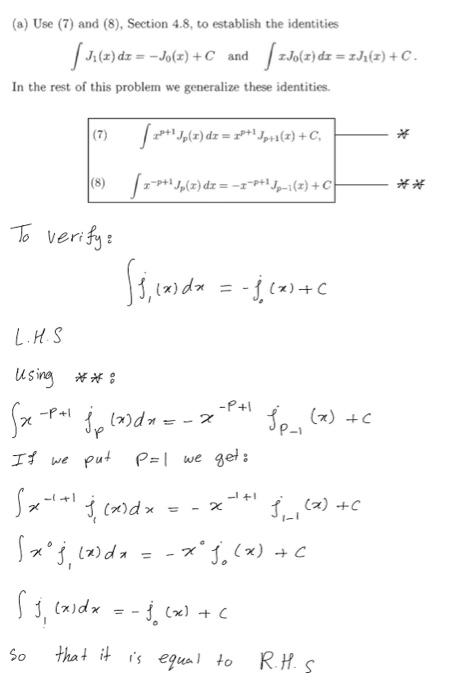 (a) Use (7) and (8), Section 4.8, to establish the identities
∫ J₁(x) dx = −J₀(x) + C and ∫ xJ₀(x) dx = xJ₁(x) + C.
In the rest of this problem we generalize these identities.
(7) ∫ x^{p+1} J_p(x) dx = x^{p+1} J_{p+1}(x) + C, *
(8) ∫ x^{-p+1} J_p(x) dx = −x^{-p+1} J_{p−1}(x) + C **
To verify:
∫ j₁(x) dx = -j₀(x) + c
L.H.S
Using **:
∫ x^{-P+1} j_p(x) dx = - x^{-P+1} j_{P-1}(x) + c
If we put P=1 we get:
∫ x^{-1+1} j₁(x) dx = - x^{-1+1} j_{1-1}(x) + c
∫ x° j₁(x) dx = - x° j₀(x) + c
∫ j₁(x) dx = - j₀(x) + c
So that it is equal to R.H.S